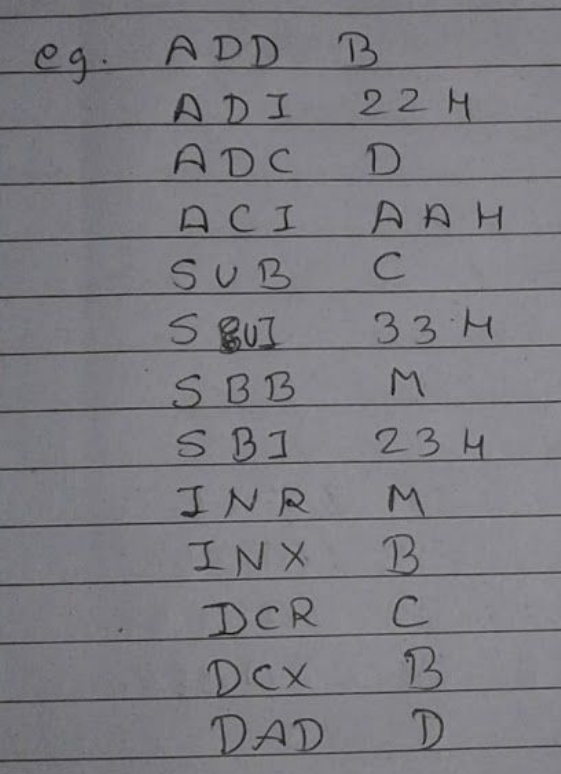 eg. ADD B
ADI 22H
ADC D
ACI AAH
SUB C
SUI 33H
SBB M
SBI 23H
INR M
INX B
DCR C
DCX B
DAD D